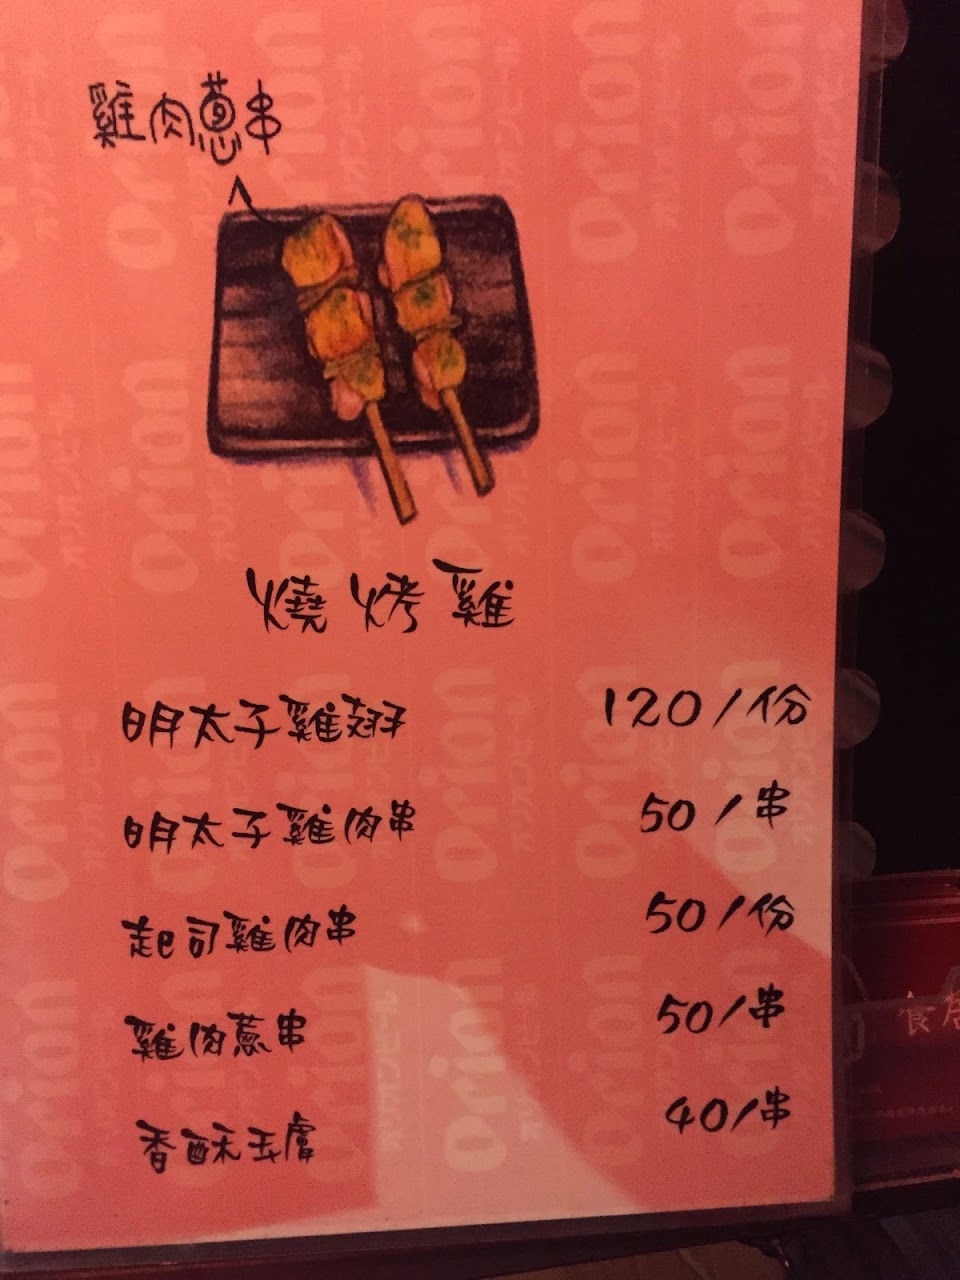 雞肉蔥串
燒烤雞
明太子雞翅 120/份
明太子雞肉串 50/串
起司雞肉串 50/份
雞肉蔥串 50/串
香酥玉膚 40/串
orion
オリオンビール
食